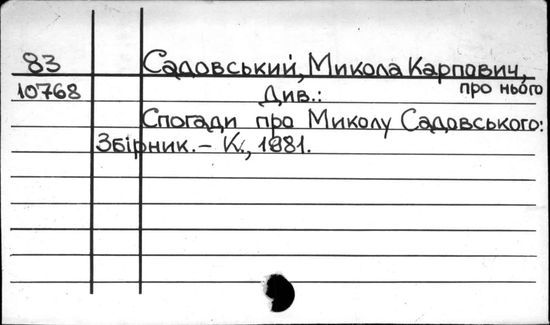 83 Садовський, Микола Карпович,
10768 про нього
Див.:
Спогади про Миколу Садовського:
Збірник. – К., 1981.